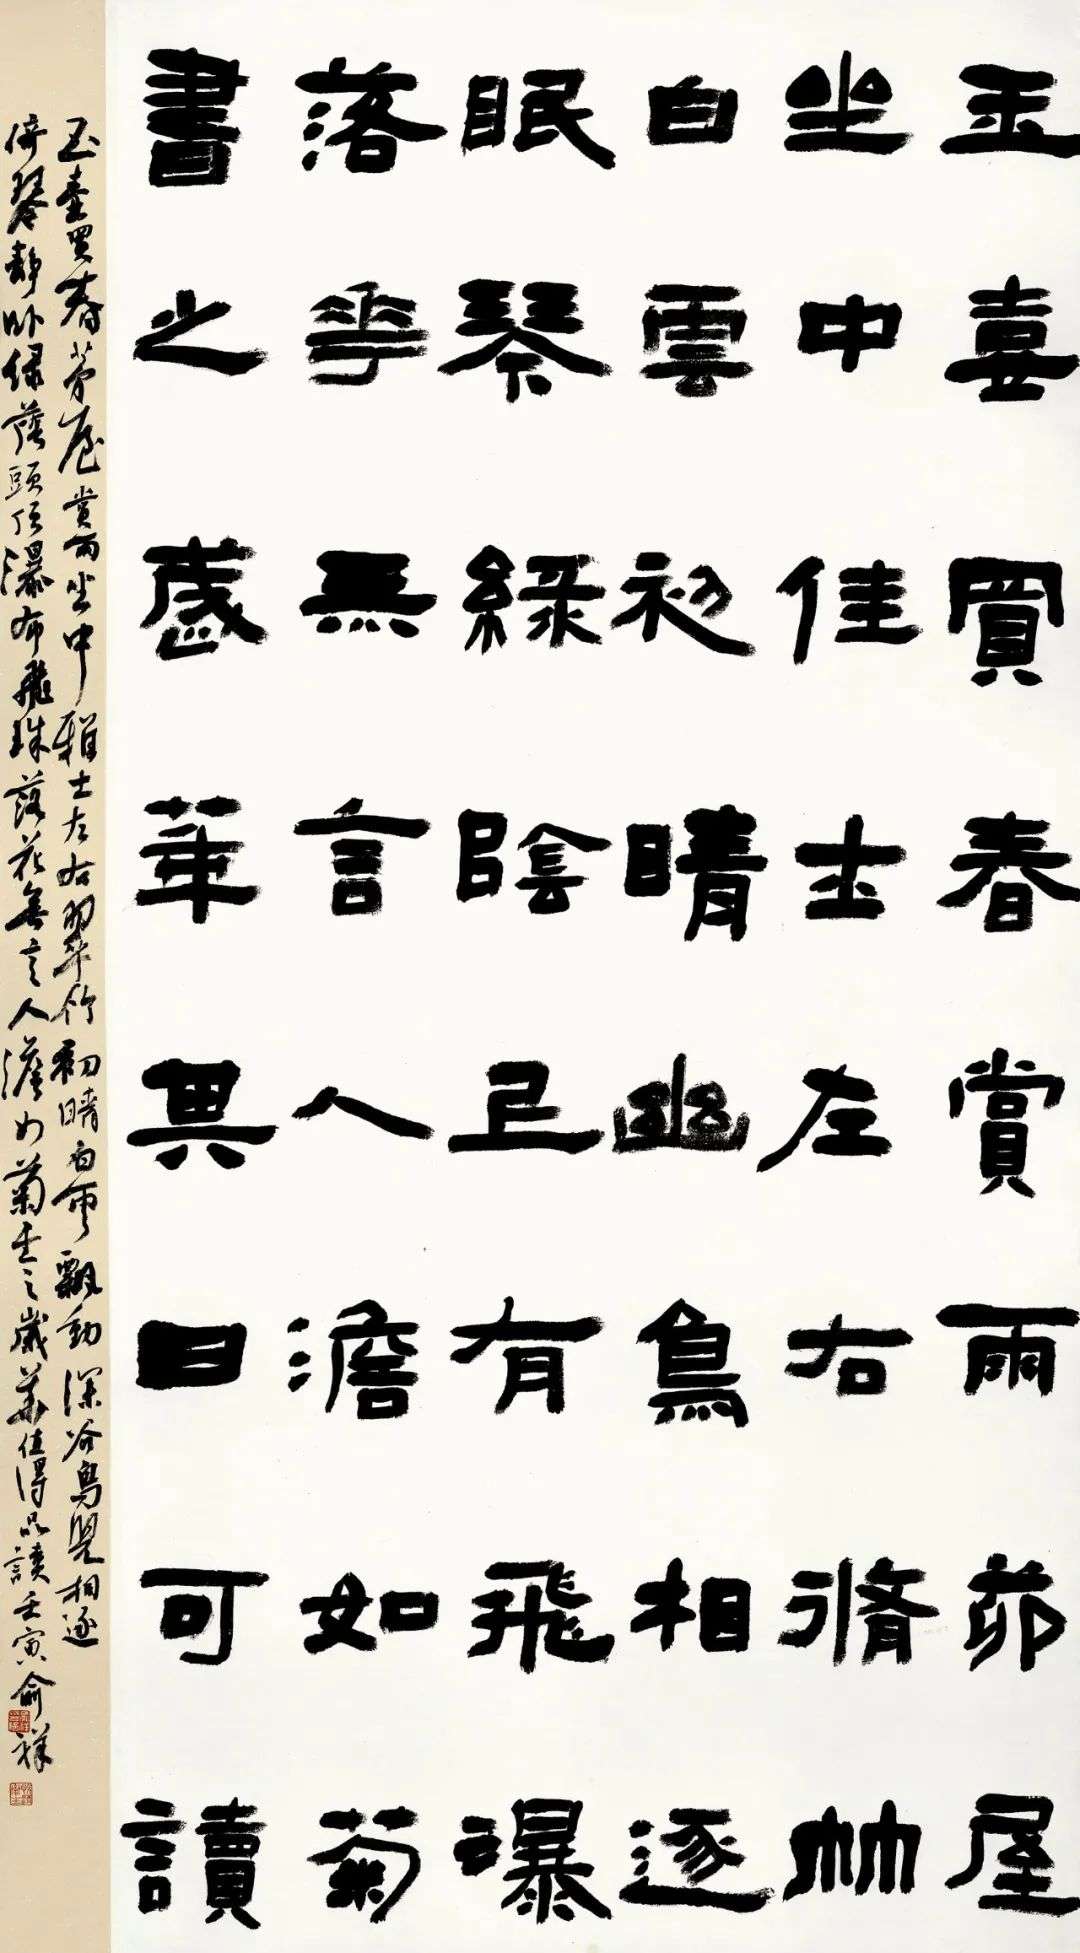 玉壺買春賞雨茆屋
坐中佳士左右脩竹
白雲初晴幽鳥相逐
眠琴綠陰上有飛瀑
落花無言人澹如菊
書之歲華其曰可讀
玉壺買春茅屋賞雨坐中雅士左右翠竹初晴白雲飄動深谷鳥兒相逐
倚琴靜臥綠蔭頭頂瀑布飛珠落花無言人澹如菊書之歲華值得品讀壬寅俞祥